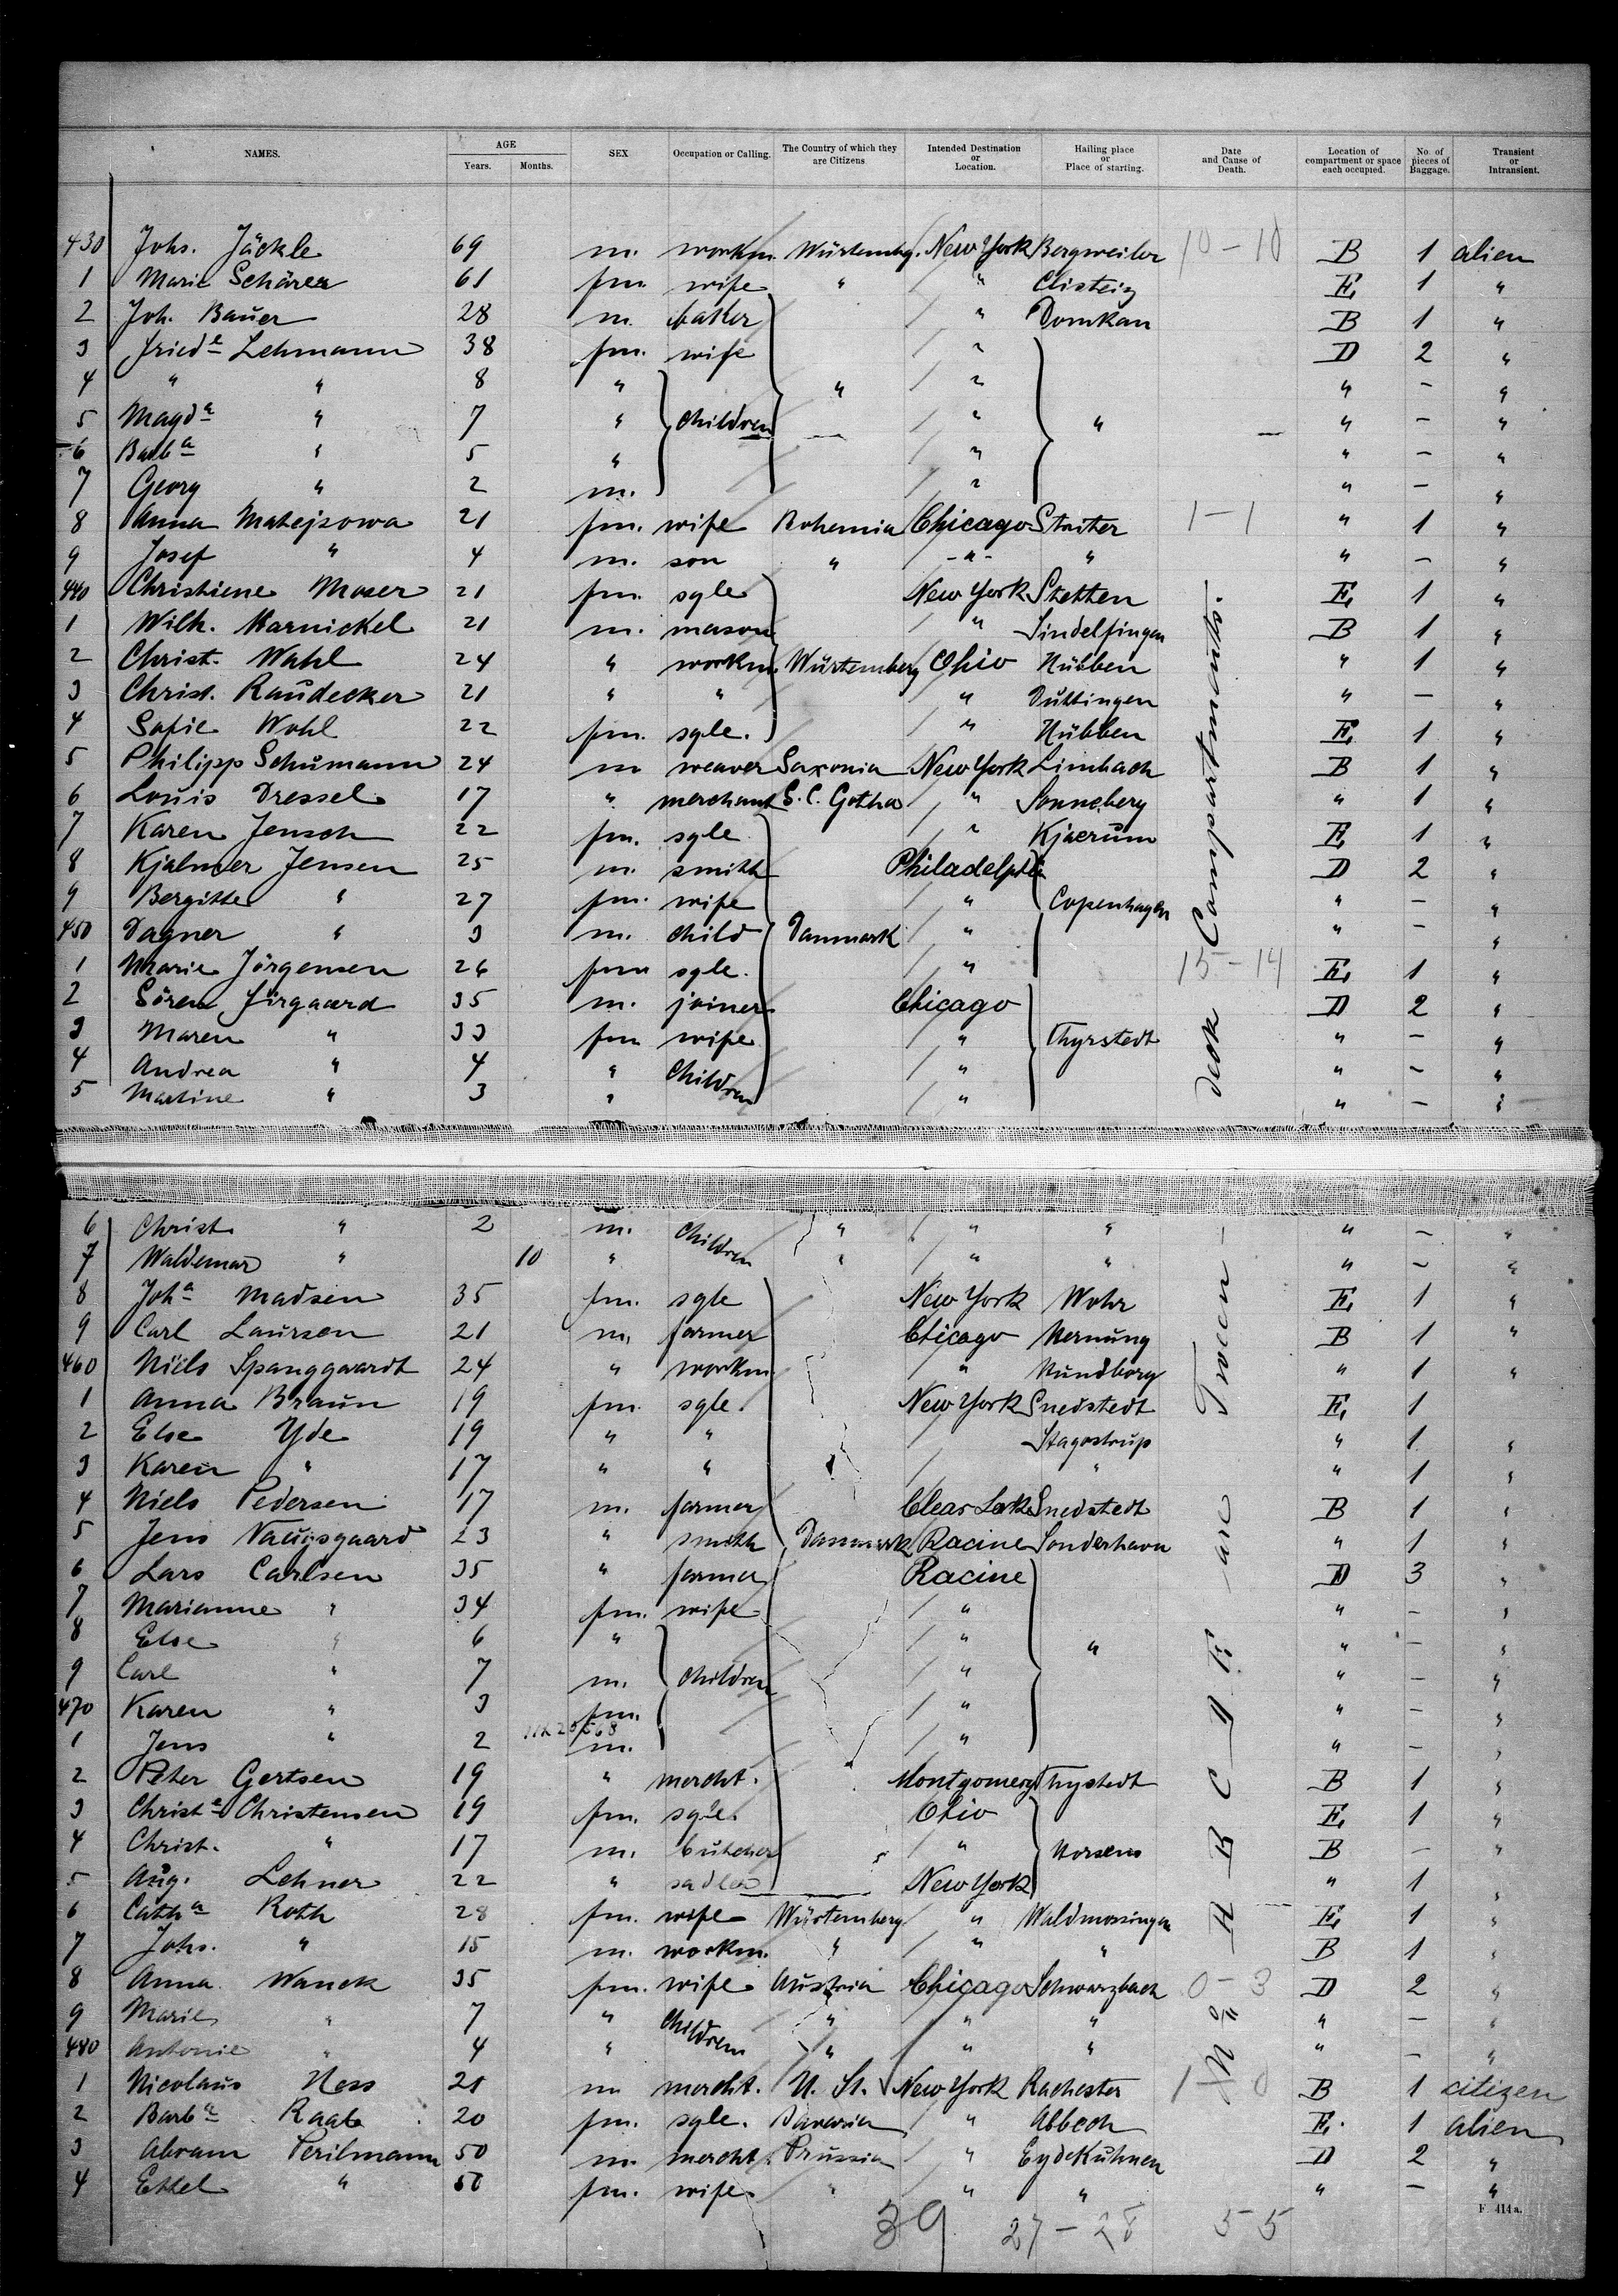 NAMES. AGE Years. Months. SEX Occupation or Calling. The Country of which they are Citizens Intended Destination or Location. Hailing place or Place of starting. Date and Cause of Death. Location of compartment or space each occupied. No. of pieces of Baggage. Transient or Intransient.
430 Johs. Jäckle 69 m. workm. Würtembg. New York Bergweiler 10-10 B 1 alien
1 Marie Schärer 61 fm wife " " E 1 "
2 Joh. Bauer 28 m. " Dornhan B 1 "
3 Friede Lehmann 38 fm. wife " D 2 "
4 " " 8 " " " " - "
5 Magda " 7 " children " " " - "
6 Barba " 5 " " " - "
7 Georg " 2 m. " " - "
8 Anna Matejsowa 21 fm. wife Bohemia Chicago 1-1 " 1 "
9 Josef " 4 m. son " -"- " " - "
440 Christiene Moser 21 fm. sgle New York Stetten E 1 "
1 Wilh. Karnickel 21 m. mason " Sindelfingen B 1 "
2 Christ. Wahl 24 " workm. Würtemberg Ohio Hübben " 1 "
3 Christ. Raudecker 21 " " " Duttingen " - "
4 Sofie Wohl 22 fm. sgle. " Hübben E 1 "
5 Philipp Schumann 24 m weaver Saxonia New York Limbach B 1 "
6 Louis Dressel 17 " merchant S. C. Gotha " Sonneberg " 1 "
7 Karen Jensch 22 fm. sgle " Kjaerum E 1 "
8 Kjalmer Jensen 25 m. smith Philadelphia D 2 "
9 Bergitte " 27 fm. wife " Copenhagen " - "
450 Dagner " 3 m. child Danmark " " - "
1 Marie Jörgensen 26 fm sgle. " 15-14 E 1 "
2 Sören Jirgaard 35 m. joiner Chicago D 2 "
3 Maren " 33 fm wife " Thyrstedt " - "
4 Andrea " 4 " Children " " - "
5 Martine " 3 " " " - "
6 Christ " 2 m. Children " " " " - "
7 Waldemar " 10 " " " " " - "
8 Joha Madsen 35 fm. sgle New York Wohr E 1 "
9 Carl Laursen 21 m. farmer Chicago Hernung B 1 "
460 Niels Spanggaardt 24 " workm. " Nundborg " 1 "
1 Anna Braun 19 fm. sgle. New York Snedstedt E 1
2 Else Yde 19 " " Stagostrup " 1 "
3 Karen " 17 " " " " 1 "
4 Niels Pedersen 17 m. farmer Clear Lake Snedstedt B 1 "
5 Jens Naugsgaard 23 " smith Danmark Racine Sonderhavn " 1 "
6 Lars Carlsen 35 " farmer Racine D 3 "
7 Marianne " 34 fm. wife " " - "
8 Else " 6 " " " " - "
9 Carl " 7 m. Children " " - "
470 Karen " 3 fm. " " - "
1 Jens " 2 m. " " - "
2 Peter Gertsen 19 " mercht. Montgomery Thystedt B 1 "
3 Christa Christensen 19 fm. sgle. Ohio E 1 "
4 Christ. " 17 m. butcher " Horsens B - "
5 Aug. Lehner 22 " sadler New York " 1 "
6 Catha Roth 28 fm. wife Würtemberg " Waldmossingen E 1 "
7 Johs. " 15 m. workm. " " " B 1 "
8 Anna Wanek 35 fm. wife Austria Chicago Schwarzbach 0-3 D 2 "
9 Marie " 7 " Children " " " " - "
480 Antonie " 4 " " " " " - "
1 Nicolaus Hess 21 m mercht. U. St. New York Rachester 1-0 B 1 citizen
2 Barba Raab 20 fm. sgle. Bavaria " Abbech E. 1 alien
3 Abram Perilmann 50 m. mercht. Prussia " Eydtkuhnen D 2 "
4 Ettel " 50 fm. wife " " " " - "
F 414a.
39 27-28 5 5
A B C D E are Tween deck Compartments.